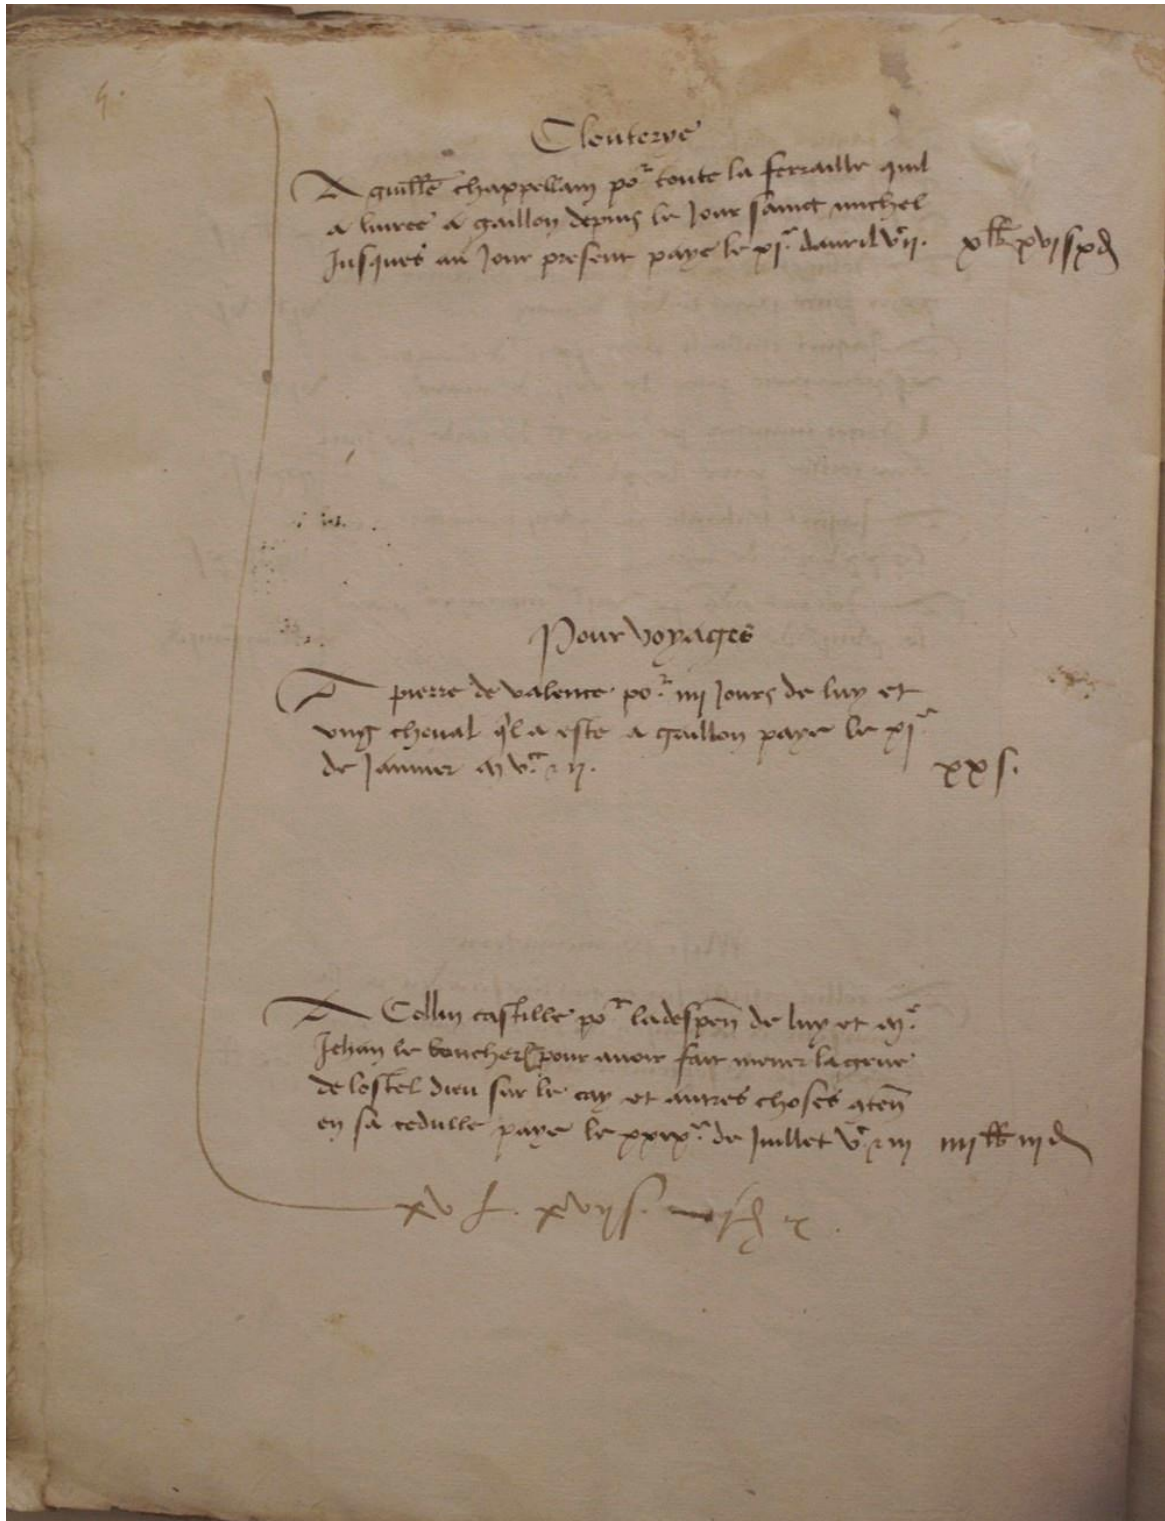 Clouterye
A guill̃e chappellain po^r toute la ferraille quil
a livree a gaillon depuis le Jour sainct michel
Jusques au Jour present paye le xj^e davril v^c ij.
x ℔ xvj s x d
Pour voyages
A pierre de valence po^r iiij Jours de luy et
ung cheval q'l a este a gaillon paye le xj^e
de Janvier m v^c & ij.
xx s.
A Collin castille po^r la despen̄ de luy et m^e
Jehan le boucher pour avoir fait mener la grue
de lostel dieu sur le cay et autres choses 9ten̄
en sa cedulle paye le xxix^e de Juillet v^c & iij
iiij ℔ iij d
xv L. xvij s.